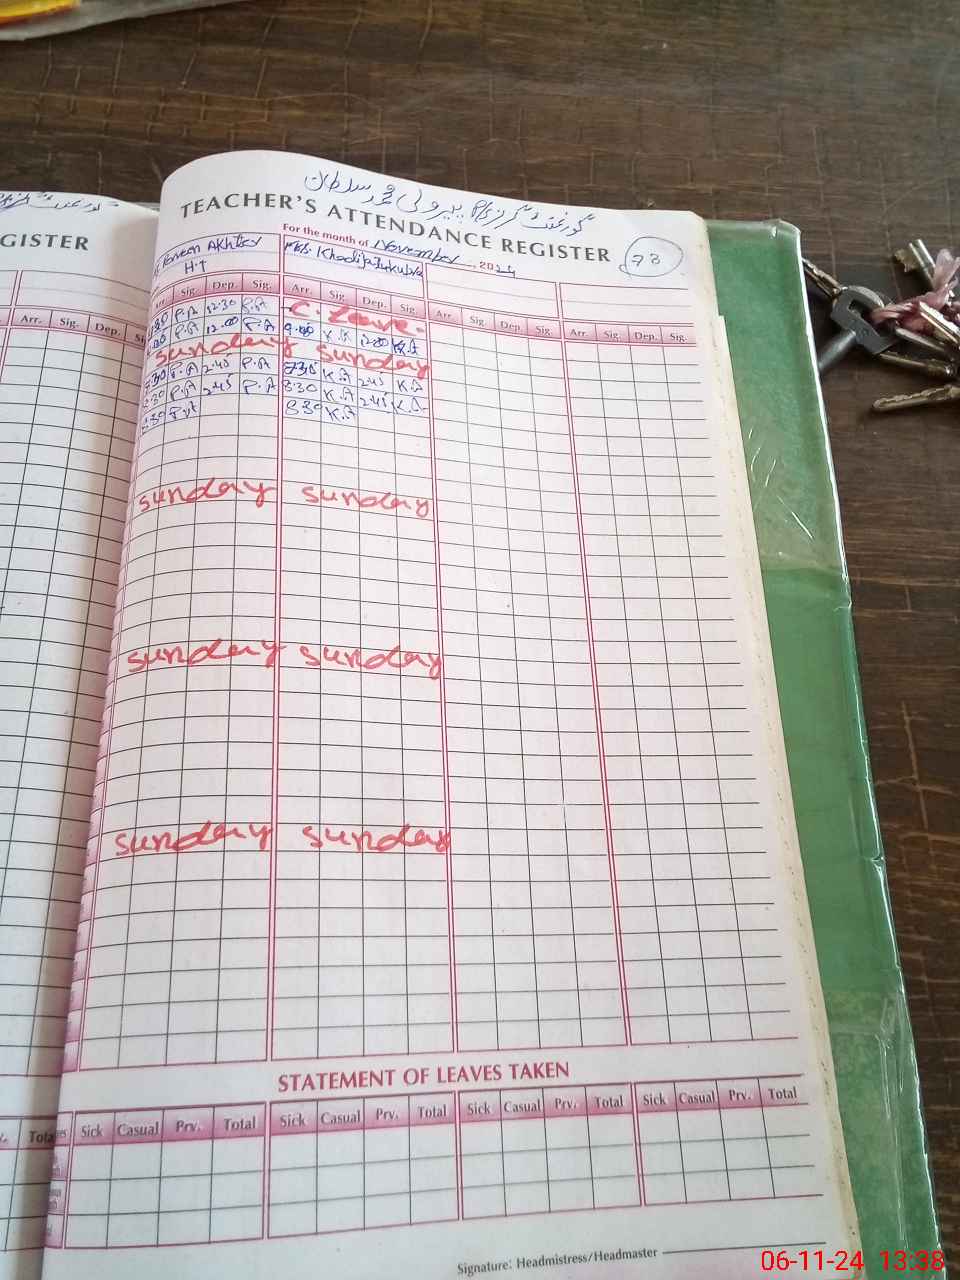 گورنمنٹ گرلز P/S پیرولی محمد سلطان
TEACHER'S ATTENDANCE REGISTER
GISTER
73
For the month of November, 2024
Parveen Akhter
H.T
Mrs. Khadija-tu-kubra
Arr. Sig. Dep. Sig. Arr. Sig. Dep. Sig. Arr. Sig. Dep. Sig. Arr. Sig. Dep. Sig.
Arr. Sig. Dep.
P.A 12.30 P.A C. Leave.
P.A 12.00 P.A 9.00 K.A 12.00 K.A
sunday sunday
730 P.A 2.45 P.A 730 K.A 2.45 K.A
830 P.A 2.45 P.A 830 K.A 2.45 K.A
830 P.A 830 K.A
sunday sunday
sunday sunday
sunday sunday
STATEMENT OF LEAVES TAKEN
Sick Casual Prv. Total Sick Casual Prv. Total Sick Casual Prv. Total Sick Casual Prv. Total
Signature: Headmistress/Headmaster
06-11-24 13:38